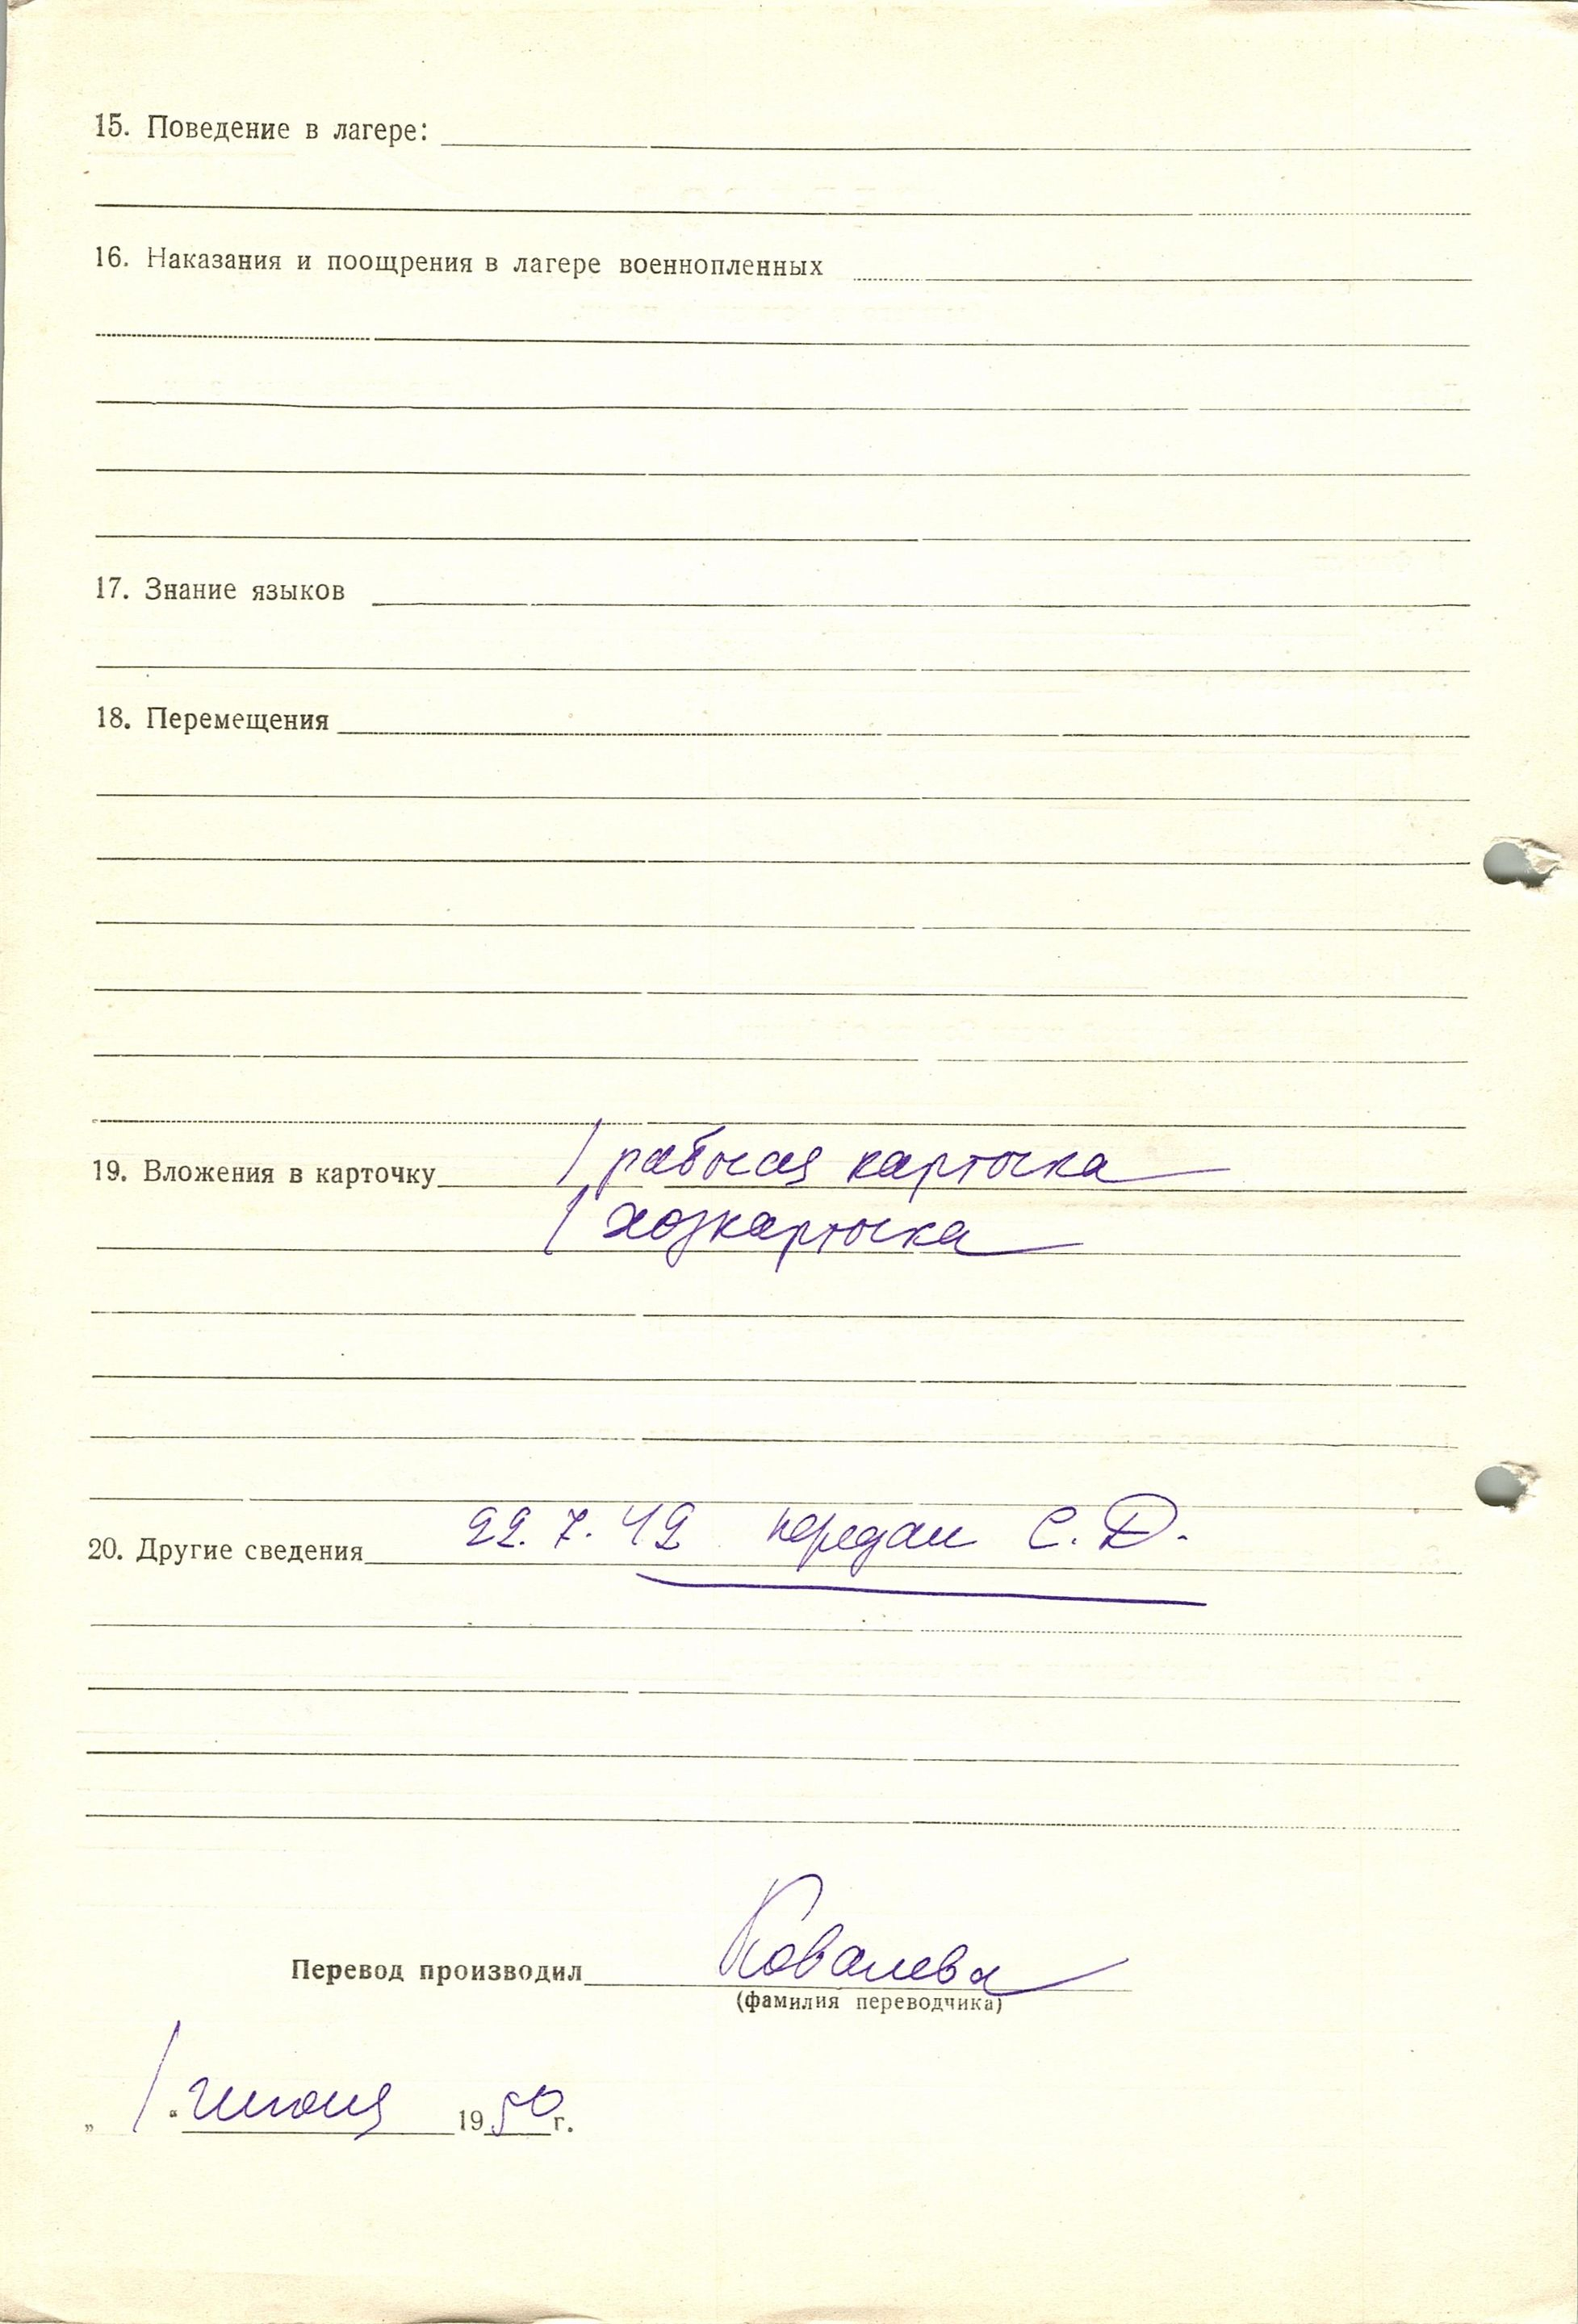 15. Поведение в лагере:
16. Наказания и поощрения в лагере военнопленных
17. Знание языков
18. Перемещения
19. Вложения в карточку 1 рабочая карточка
1 хозкарточка
20. Другие сведения 22. 7. 42 передан С. Д.
Перевод производил Ковалева
(фамилия переводчика)
„ 1 “ июня 1950 г.